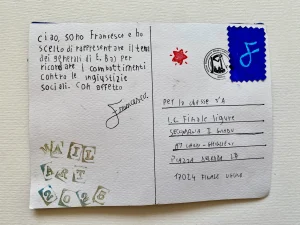 Ciao, sono Francesco e ho
scelto di rappresentare il tema
dei generali di L. Baj per
ricordare i combattimenti
contro le ingiustizie
sociali. Con affetto
Francesco
MAIL
ART
2026
Per la classe 2ªA
I.C Finale Ligure
Secondaria I Grado
Piazza
17024 FINALE LIGURE